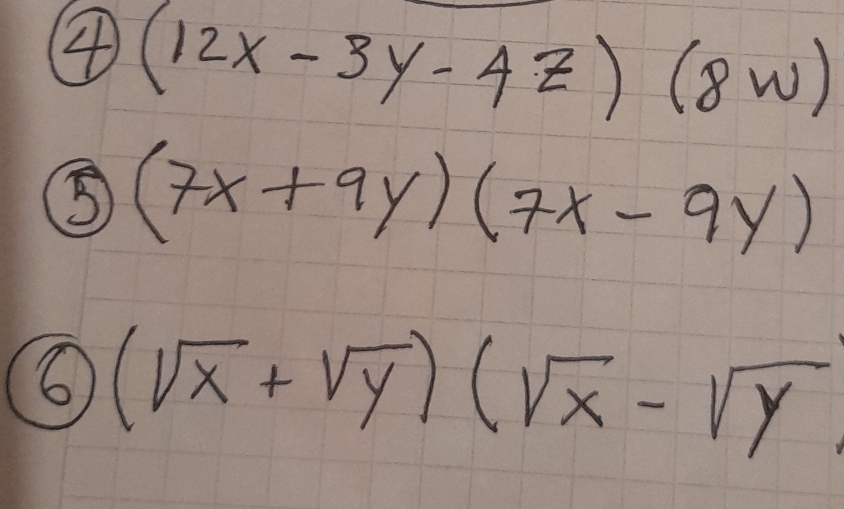 ④ (12x - 3y - 4z) (8w)
⑤ (7x + 9y) (7x - 9y)
⑥ (√x + √y) (√x - √y)